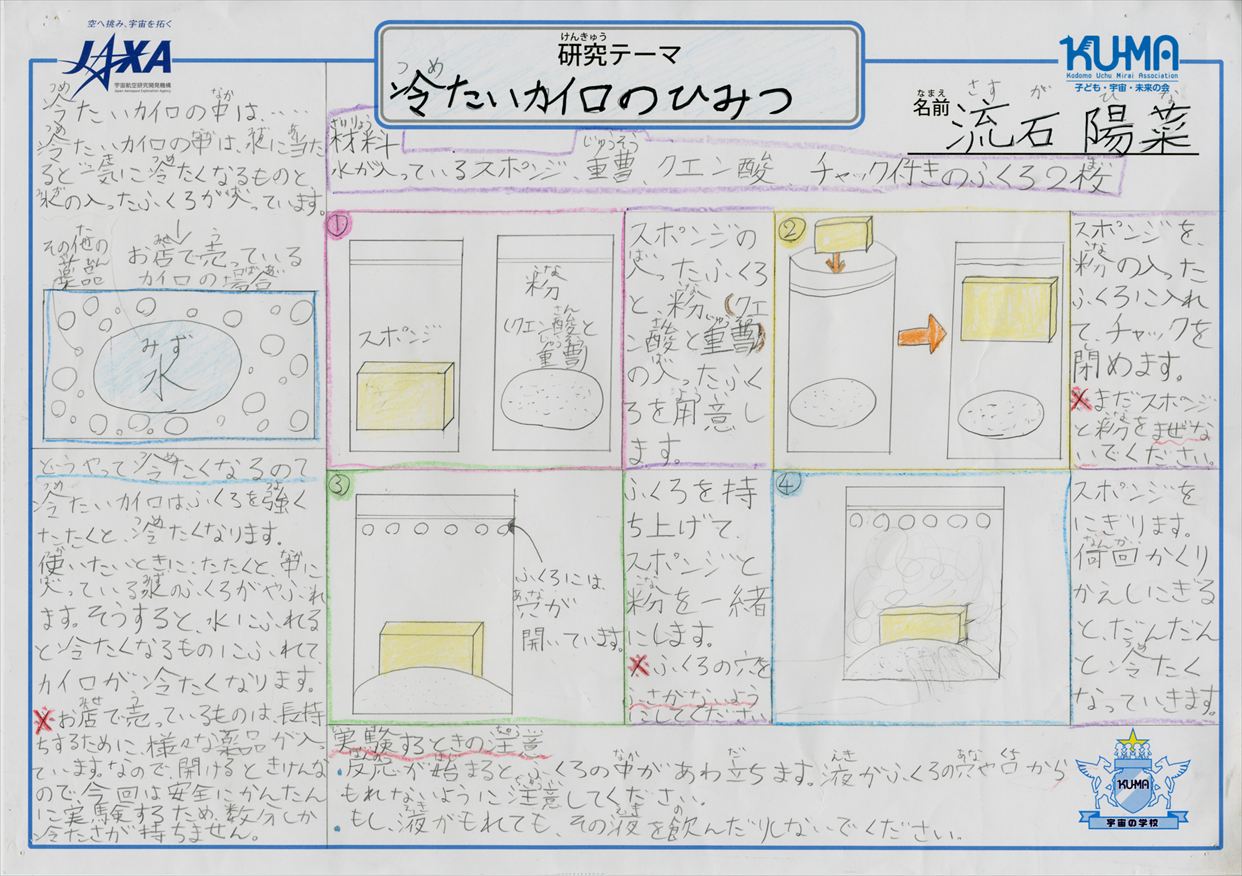 空へ挑み、宇宙を拓く
JAXA
宇宙航空研究開発機構
Japan Aerospace Exploration Agency
けんきゅう
研究テーマ
つめ
冷たいカイロのひみつ
KU-MA
Kodomo Uchu Mirai Association
子ども・宇宙・未来の会
なまえ
名前
さすが ひな
流石 陽菜
冷たいカイロの中は…
冷たいカイロの中は、水に当た
ると一気に冷たくなるものと、
水の入ったふくろが入っています。
その他の
薬品
お店で売っている
カイロの場合
みず
水
どうやって冷たくなるので
冷たいカイロはふくろを強く
たたくと、冷たくなります。
使いたいときに、たたくと、中に
入っている水のふくろがやぶれ
ます。そうすると、水にふれる
と冷たくなるものにふれて、
カイロが冷たくなります。
※お店で売っているものは、長持
ちするために、様々な薬品が入っ
ています。なので、開けるときけんな
ので今回は安全にかんたん
に実験するため、数分しか
冷たさが持ちません。
ざいりょう
材料
じゅうそう
水が入っているスポンジ、重曹、クエン酸、チャック付きのふくろ2枚
①
スポンジ
こな
粉
(クエン酸と
重曹)
スポンジの
入ったふくろ
と、粉(クエ
ン酸と重曹)
の入ったふく
ろを用意し
ます。
②
スポンジを、
粉の入った
ふくろに入れ
て、チャックを
閉めます。
※まだスポンジ
と粉をまぜな
いでください。
③
ふくろには、
あな
穴が
開いています。
ふくろを持
ち上げて、
スポンジと
粉を一緒
にします。
※ふくろの穴を
ふさがないよう
にしてください
④
スポンジを
にぎります。
何回かくり
かえしにぎる
と、だんだん
と冷たく
なっていきます。
実験するときの注意
・反応が始まると、ふくろの中があわ立ちます。液がふくろの穴や口から
もれないように注意してください。
・もし、液がもれても、その液を飲んだりしないでください。
KU-MA
宇宙の学校